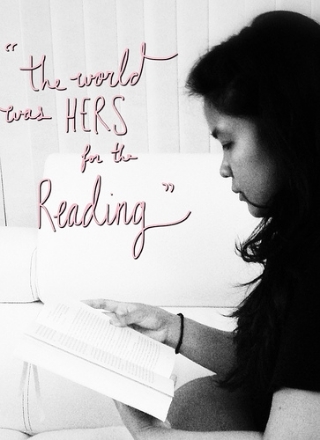 “the world
was HERS
for the
Reading”